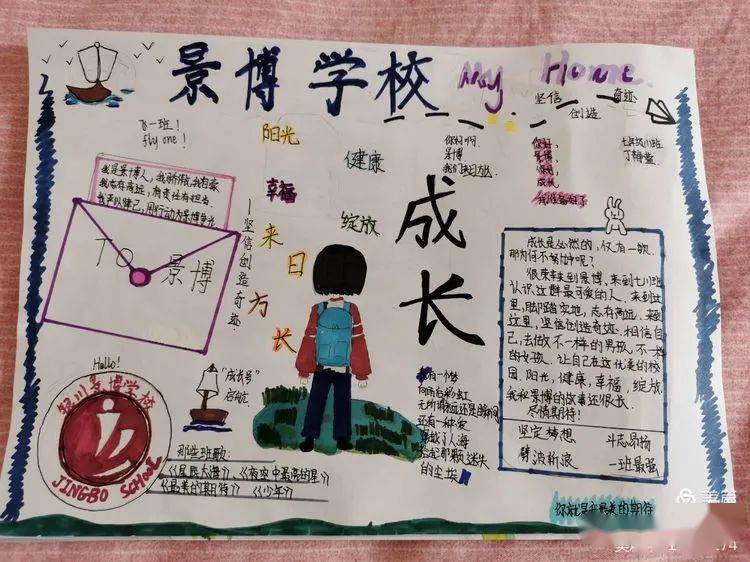 景博学校 My Home
坚信
创造
奇迹
飞一班！
fly one！
阳光
健康
幸福
绽放
你好啊，
景博
我们来日方长
你好，
景博，
你好，
成长
七年级八班
我是景博人，我骄傲，我自豪
我志存高远，有责任有担当
TO 景博
—坚信创造奇迹
来日方长
成长
成长是必然的，仅有一次，
那为何不努力呢？
很荣幸来到景博，来到七八班
认识这群最可爱的人，来到这
里，脚踏实地，志存高远。来到
这里，坚信创造奇迹。相信自
己，去做不一样的男孩，不一样
的女孩，让自己在这优美的校
园，阳光，健康，幸福，绽放
我和景博的故事还很长，
尽情期待！
坚定梦想 斗志昂扬
劈波斩浪 一班最强
Hello!
银川景博学校
JINGBO SCHOOL
"成长号"
启航
那些班歌：
《星辰大海》《夜空中最亮的星》
《最美的期待》《少年》
我有一个梦
还有一种爱
穿越了人海
给起那颗迷失
的尘埃
你就是我最美的期待
美篇